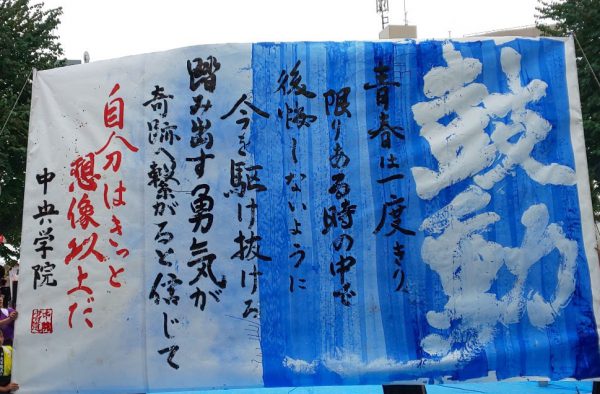 鼓動
青春は一度きり
限りある時の中で
後悔しないように
今を駆け抜けろ
踏み出す勇気が
奇跡へ繋がると信じて
自分はきっと
想像以上だ
中央学院